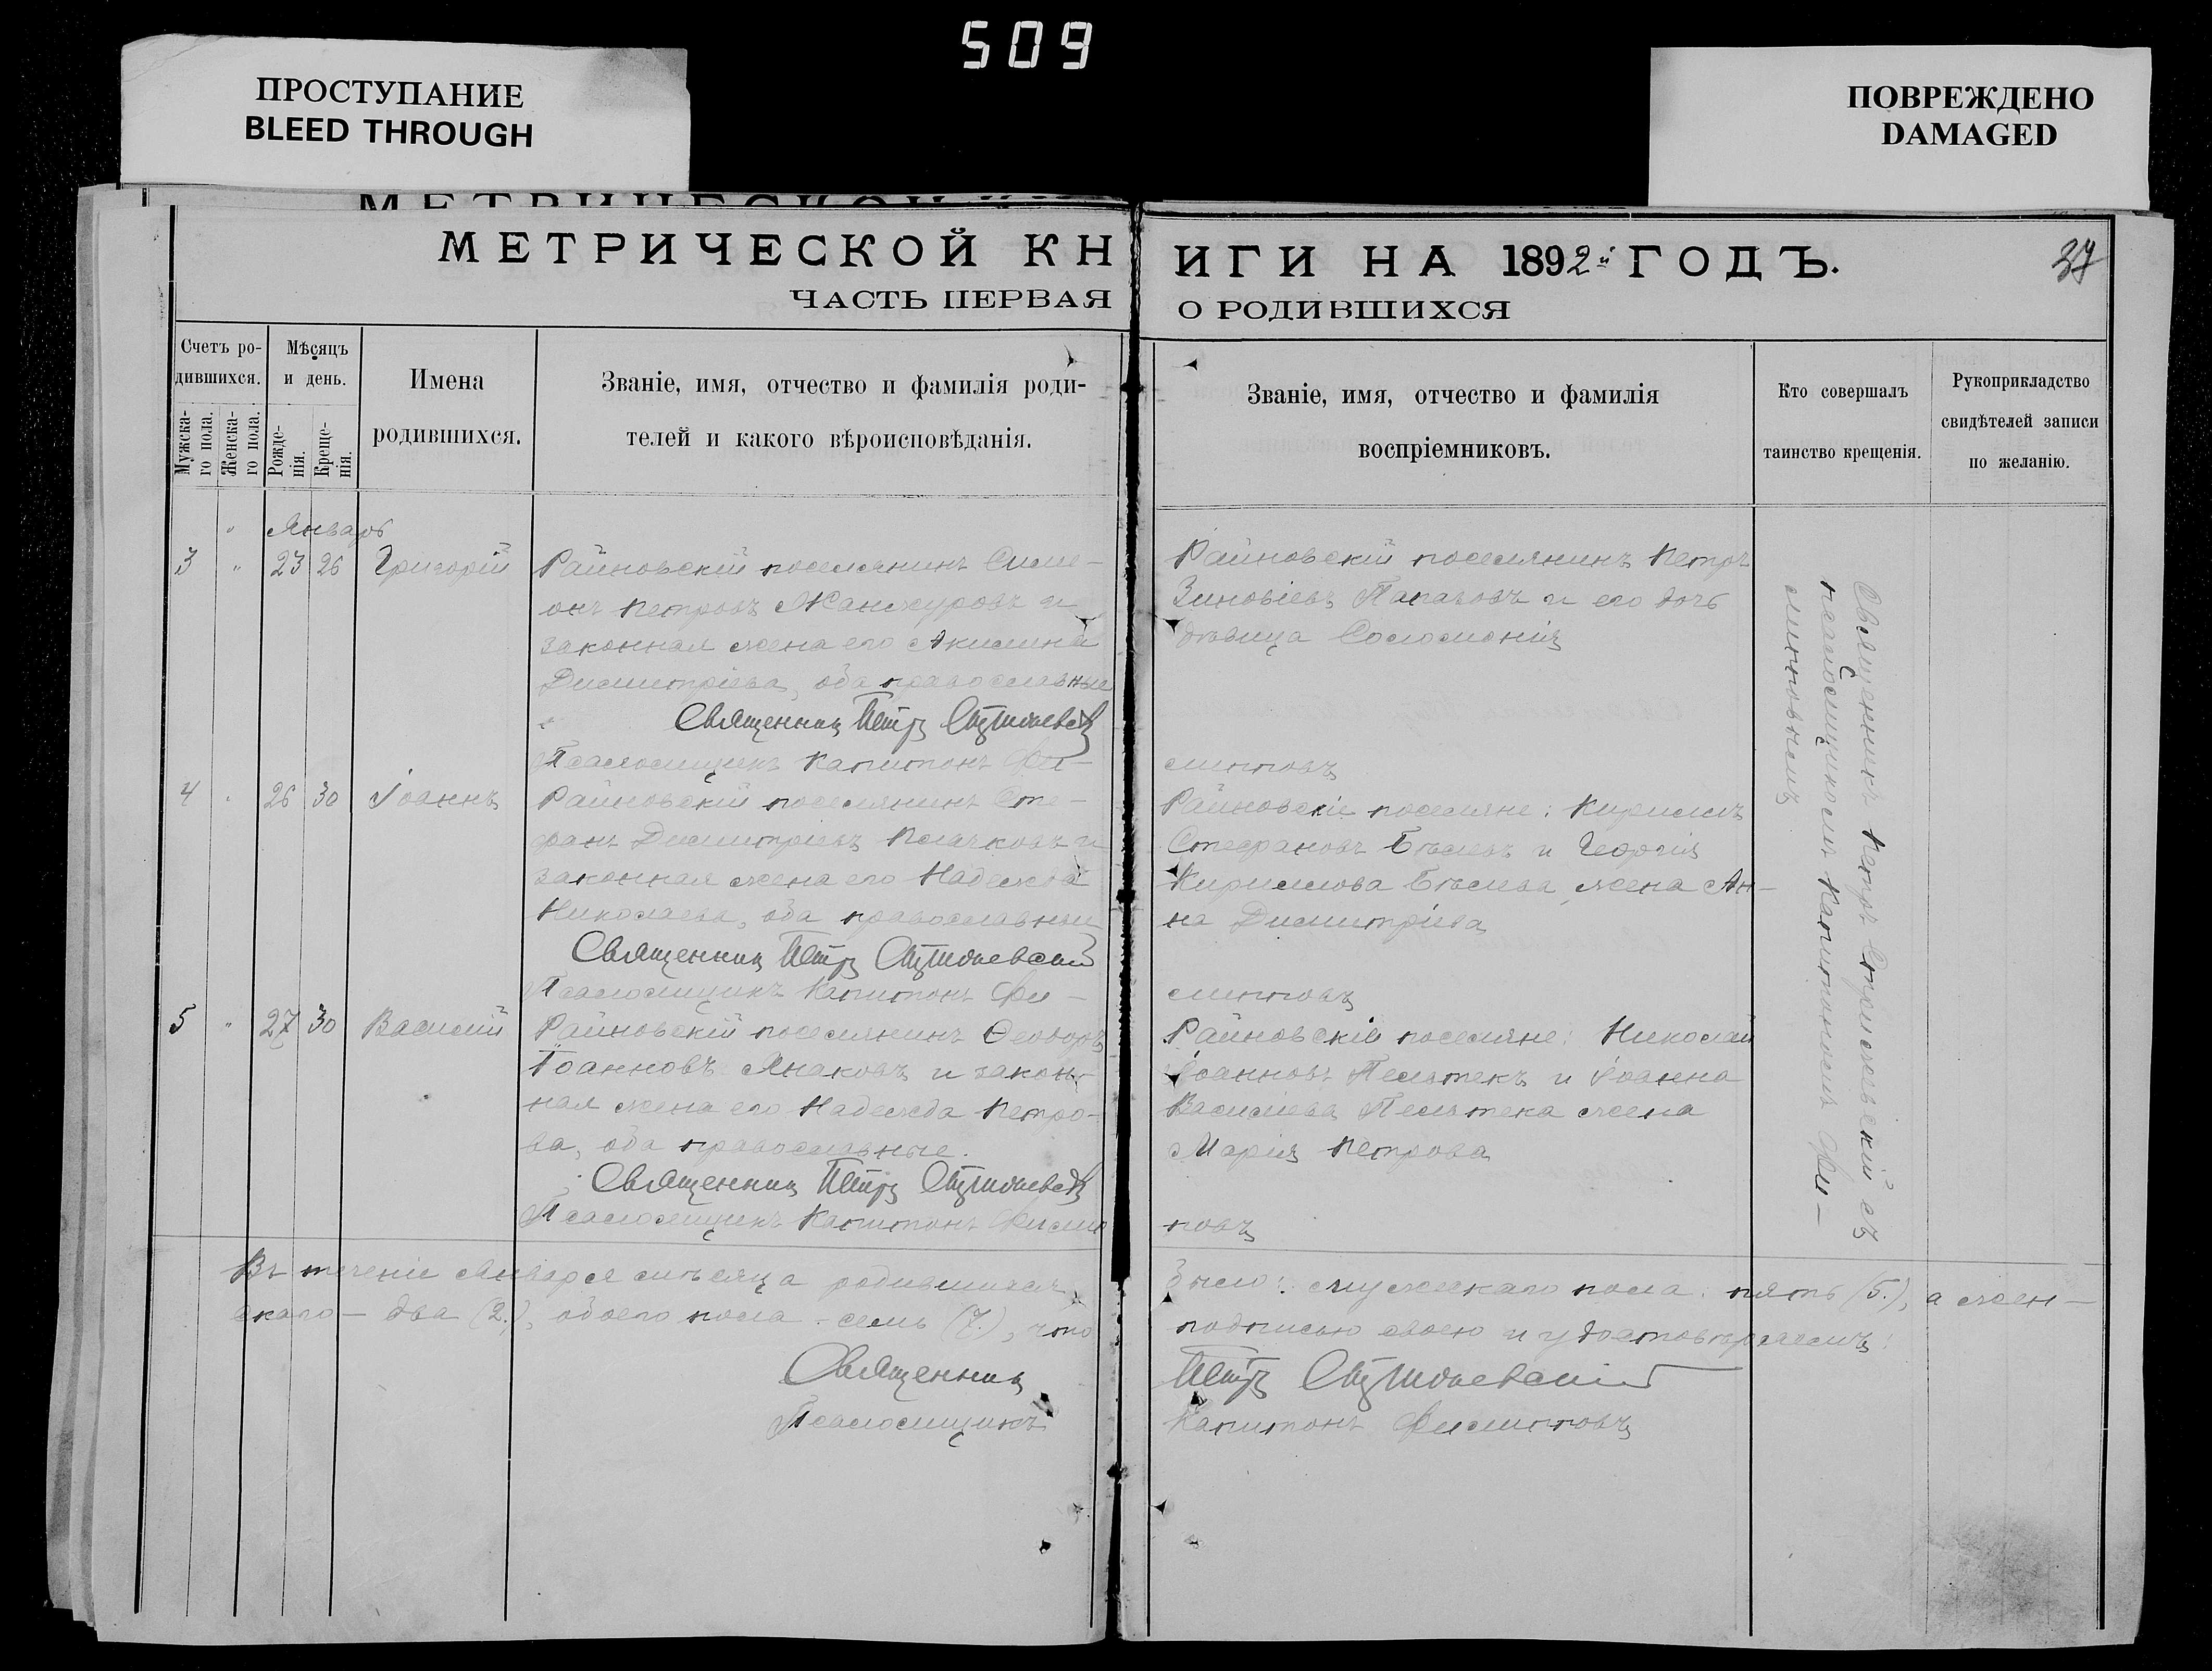 509
ПРОСТУПАНИЕ
BLEED THROUGH
ПОВРЕЖДЕНО
DAMAGED
МЕТРИЧЕСКОЙ КНИГИ НА 1892й ГОДЪ.
37
ЧАСТЬ ПЕРВАЯ О РОДИВШИХСЯ
Счетъ ро-
дившихся.
Мужска-
го пола.
Женска-
го пола.
Мѣсяцъ
и день.
Рожде-
нія.
Креще-
нія.
Имена
родившихся.
Званіе, имя, отчество и фамилія роди-
телей и какого вѣроисповѣданія.
Званіе, имя, отчество и фамилія
воспріемниковъ.
Кто совершалъ
таинство крещенія.
Рукоприкладство
свидѣтелей записи
по желанію.
" Январь
3 " 23 26 Григорій
Райновскій поселянинъ Симе-
онъ Петровъ Жанжуровъ и
законная жена его Акилина
Димитріева, оба православные
Священникъ Петръ
Псаломщикъ Капитонъ Фи-
Райновскій поселянинъ Петръ
Зиновіевъ Папазовъ и его дочь
дѣвица Соломонія
липповъ
4 " 26 30 Іоаннъ
Райновскій поселянинъ Сте-
фанъ Димитріевъ Плачковъ и
законная жена его Надежда
Николаева, оба православные
Священникъ Петръ
Псаломщикъ Капитонъ Фи-
Райновскіе поселяне: Кириллъ
Стефановъ Бѣлевъ и Георгія
Кириллова Бѣлева жена Ан-
на Димитріева
липповъ
5 " 27 30 Василій
Райновскій поселянинъ Ѳеодоръ
Іоанновъ Янаковъ и закон-
ная жена его Надежда Петро-
ва, оба православные.
Священникъ Петръ
Псаломщикъ Капитонъ Филип
Райновскіе поселяне: Николай
Іоанновъ Пельтекъ и Іоанна
Василіева Пельтека жена
Марія Петрова
повъ
Священникъ Петръ съ
псаломщикомъ Капитономъ Фи-
липповымъ
Въ теченіе Января мѣсяца родившихся было: мужескаго пола: пять (5.), а жен-
скаго - два (2.), обоего пола - семь (7.), что подписью своею и удостовѣряемъ:
Священникъ Петръ
Псаломщикъ Капитонъ Филипповъ